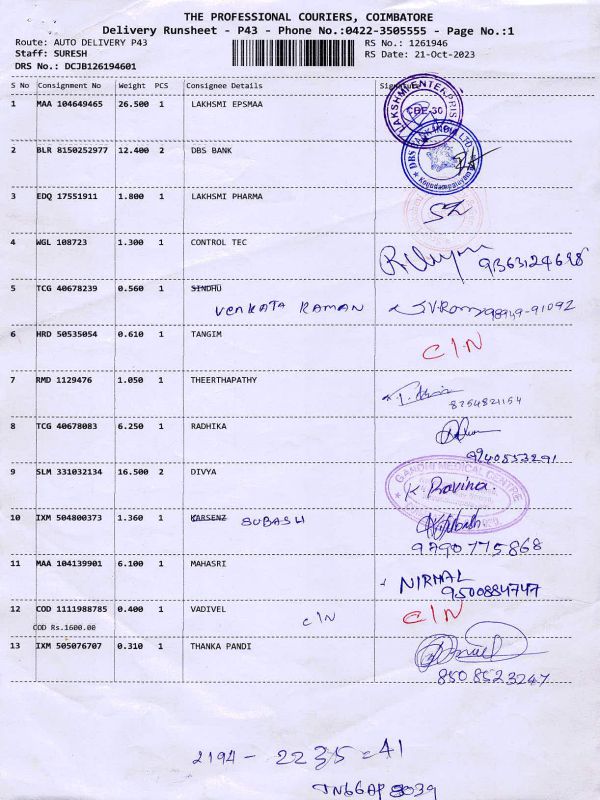 THE PROFESSIONAL COURIERS, COIMBATORE
Delivery Runsheet - P43 - Phone No.:0422-3505555 - Page No.:1
Route: AUTO DELIVERY P43 RS No.: 1261946
Staff: SURESH RS Date: 21-Oct-2023
DRS No.: DCJB126194601
S No Consignment No Weight PCS Consignee Details
1 MAA 104649465 26.500 1 LAKHSMI EPSMAA
LAKSHMI ENTERPRIS CBE-30
2 BLR 8150252977 12.400 2 DBS BANK
DBS BANK INDIA LTD Koundampalayam
3 EDQ 17551911 1.800 1 LAKHSMI PHARMA
4 WGL 108723 1.300 1 CONTROL TEC
9363124698
5 TCG 40678239 0.560 1 SINDHU
VENKATA RAMAN 98949-91092
6 HRD 50535054 0.610 1 TANGIM
C/N
7 RMD 1129476 1.050 1 THEERTHAPATHY
8254821154
8 TCG 40678083 6.250 1 RADHIKA
9240853291
9 SLM 331032134 16.500 2 DIVYA
GANDHI MEDICAL CENTRE
K Pravina
10 IXM 504800373 1.360 1 KARSENZ SUBASH
9790775868
11 MAA 104139901 6.100 1 MAHASRI
NIRMAL
9500884747
12 COD 1111988785 0.400 1 VADIVEL C/N C/N
COD Rs.1600.00
13 IXM 505076707 0.310 1 THANKA PANDI
8508523247
2194 - 2235 = 41
TN66AP 8039